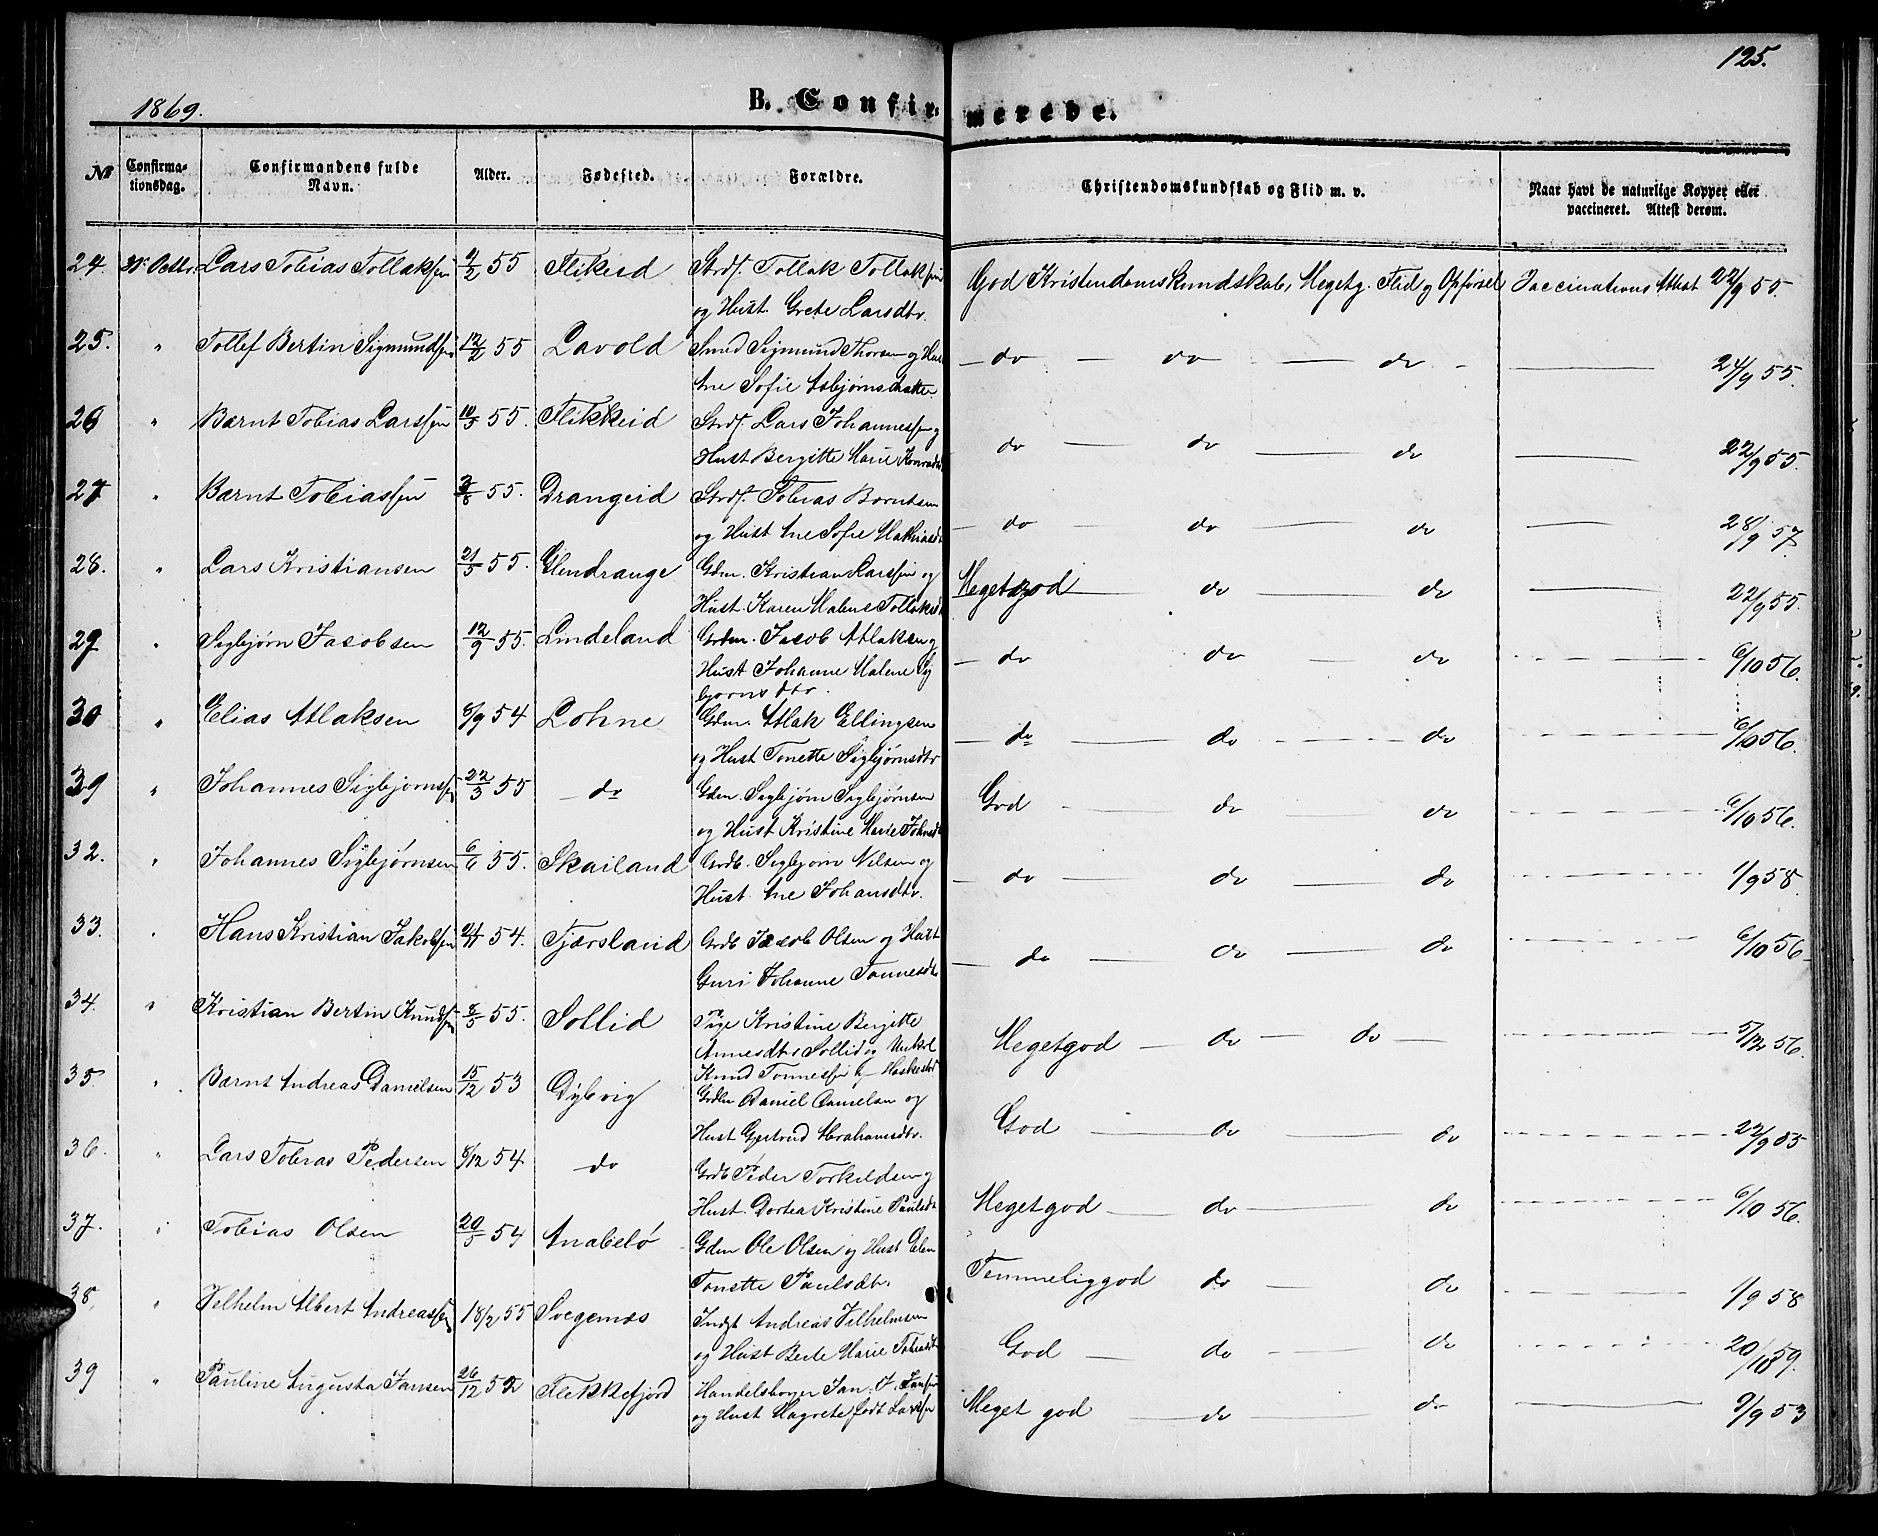 125.
1869.
B. Confirmerede.
№ Confirmationsdag. Confirmandens fulde Navn. Alder. Fødested. Forældre. Christendomskundskab og Flid m. v. Naar havt de naturlige Kopper eller vaccineret. Attest derom.
24 31 Octbr. Lars Tobias Tollaksen 9/2 55 Flikeid Strdf. Tollak Tollaksen God Kristendomskundskab, Megetg. Flid og Opførsel Vaccinations Attest 22/9 55.
og Hust. Grete Larsdtr.
25. " Tollef Bertin Sigmundsen 12/2 55 Lavold Smed Sigmund Thorsen og Hust do do do 24/9 55.
Ane Sofie Asbjørnsdatter
26 " Bærnt Tobias Larssen 10/5 55. Flikkeid Strdf. Lars Johannessen og do do do 22/9 55.
Hust Bergitte Marie
27 " Bærnt Tobiassen 55. Drangeid Strdf. Tobias Berntsen do do do 28/9 57.
og Hust Ane Sofie
28. " Lars Kristiansen 21/5 55. Glendrange Gdm. Kristian Larssen og Megetgod do do 22/9 55.
Hust. Karen Malene Tollaksdt
29 " Sigbjørn Jacobsen 12/9 55. Lindeland Grdm. Jacob Atlaksen og do do do 6/10 56.
Hust Johanne Malene Sig
bjørnsdtr.
30 " Elias Atlaksen 8/9 54 Lohne Gdm. Atlak Ellingsen do do do 6/10 56.
og Hust Tonette Sigbjørnsdtr
39 " Johannes Sigbjørnssen 22/3 55 do Gdm. Sigbjørn Sigbjørnsen God do do 6/10 56.
og Hust Kristine Marie Johnsdt
32. " Johannes Sigbjørnsen 6/6 55. Skailand Grdb. Sigbjørn Nilsen og do do do 1/9 58.
Hust. Ane Johansdtr.
33. " Hans Kristian Jakobsen 54. Fjærsland Grdb Jacob Olsen og Hust do do do 6/10 56
Guri Johanne Tønnesdt
34. " Kristian Bertin Knudsen 8/5 55. Sollid Pige Kristine Bergitte Megetgod do do 5/12 56.
Annesdtr Sollid og Unkel
Knud Tønnessen
35 " Bærnt Andreas Danielsen 15/12 53 Dybvig Daniel Danielsen og God do do 22/9 55
Hust Gjertrud Abrahamsdtr.
36. " Lars Tobias Pedersen 8/12 54 do Grdb Peder Torkildsen og Megetgod do do 6/10 56.
Hust. Dortea Kristine Paulsdt
37. " Tobias Olsen 20/5 54 Anabelø Gdm Ole Olsen og Hust Elen Temmeliggod do do 1/9 58
Tonette Paulsdtr
38. " Vilhelm Albert Andreassen 18/2 55 Svegenæs Indst Andreas Vilhelmsen God do do 20/10 59.
og Hust Berte Marie Tobiasdt
39 " Pauline Augusta Jansen 26/12 52 Flekkefjord Handelsborger Jan. J. Jansen Meget god do do 9/9 53
og Hust Magrete født Larssen